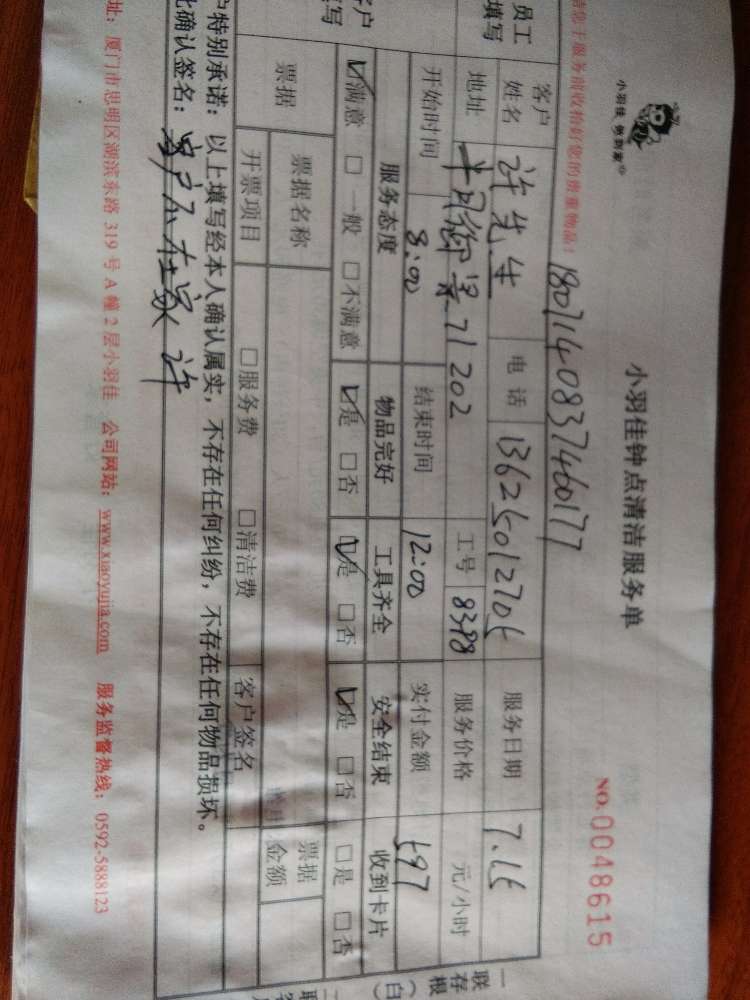 小羽佳 做到家
小羽佳钟点清洁服务单
NO.0048615
洁您于服务前收拾好您的贵重物品！
1807140837460177
员工
填写
客户
姓名
许先生
电话
服务日期
7.15
地址
御景71202
工号
8398
服务价格
元/小时
开始时间
8:00
结束时间
12:00
实付金额
597
服务态度
物品完好
工具齐全
安全结束
收到卡片
☑满意 □一般 □不满意
☑是 □否
☑是 □否
☑是 □否
□是 □否
票据
票据名称
票据
金额
开票项目
□服务费 □清洁费
客户签名
户特别承诺：以上填写经本人确认属实，不存在任何纠纷，不存在任何物品损坏。
此确认签名：客户不在家 许
址：厦门市思明区湖滨东路 319 号 A 幢 2 层小羽佳 公司网站：www.xiaoyujia.com 服务监督热线：0592-5888123
一
联
存
根
（白